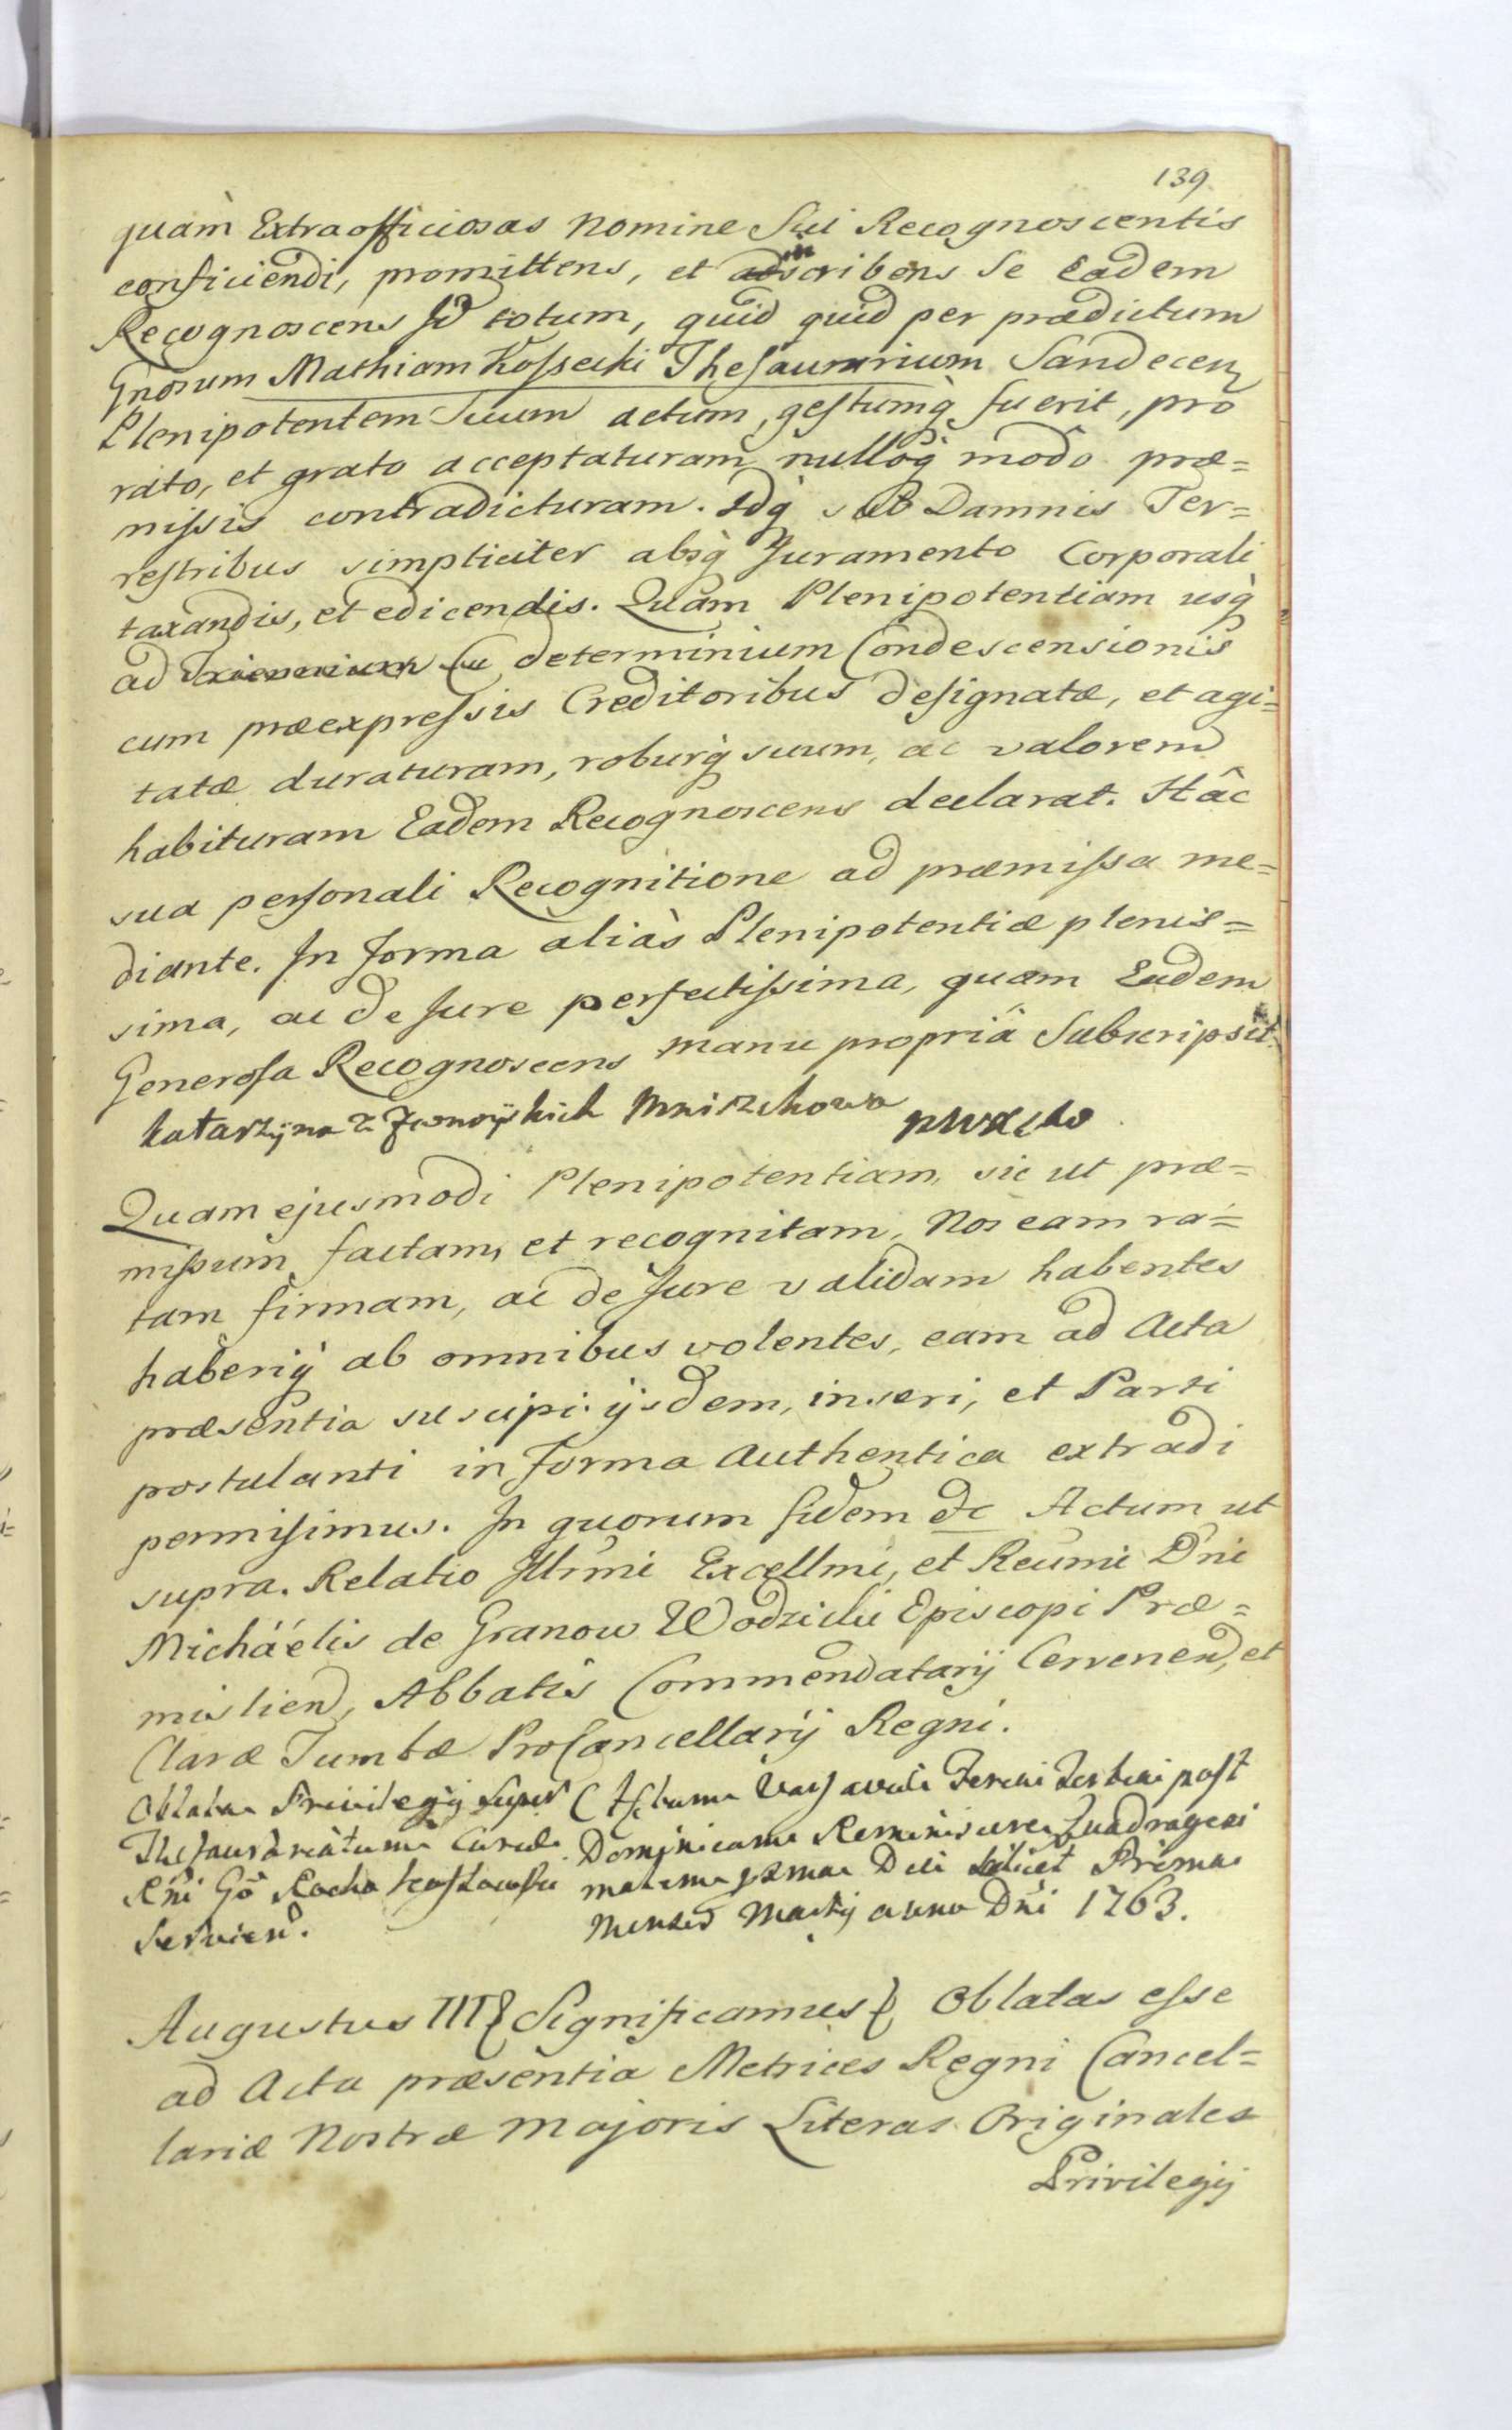 139.
quàm Extraofficiosas Nomine Sui Recognoscentis
conficiendi, promittens, et inscribens Se Eadem
Recognoscens Id totum, quid quid per prædictum
Gnosum Mathiam Kossecki Thesaurarium Sandecen
Plenipotentem Suum actum, gestumq́ fuerit, pro
rato, et grato acceptaturam nulloq́ modo præ=
missis contradicturam. Idq́ sub Damnis Ter=
restribus simpliciter absq́ Juramento Corporali
taxandis, et edicendis. Quàm Plenipotentiam usq́
ad determinium Condescensionis
cum præexpressis Creditoribus designatæ, et agi=
tatæ duraturam, roburq́ suum, ac valorem
habituram Eadem Recognoscens declarat. Hâc
sua personali Recognitione ad præmissa me=
diante. In forma aliàs Plenipotentiæ plenis=
sima, ac de Jure perfectissima, quam Eadem
Generosa Recognoscens manu propriâ Subscripsit.
Katarzyna z Zamoyskich Mniszchowa
Quam ejusmodi Plenipotentiam, sic ut præ=
missum factam, et recognitam, Nos eam ra=
tam firmam, ac de Jure validam habentes
haberiq́ ab omnibus volentes, eam ad Acta
præsentia suscipi ijsdem, inseri, et Parti
postulanti in Forma Authentica extradi
permisimus. In quorum fidem &c Actum ut
supra. Relatio Illrmi Excellmi, et Reumi Dni
Michäélis de Granow Wodzicki Episcopi Præ=
mislien, Abbatis Commendatarij Cervenen, et
Claræ Tumbæ ProCancellarij Regni.
Oblata Privilegij super
Thesaurariatum Curiæ
Rni Gō Rocho Kossowski
Servien.
Actum Varsaviæ Feria Tertia post
Dominicam Reminiscere Quadragesi
malem prima Die scilicet Prima
Mensis Martij anno Dni 1763.
Augustus III{ Significamus{ Oblatas esse
ad Acta præsentia Metrices Regni Cancel=
lariæ Nostræ Majoris Literas Originales
Privilegij